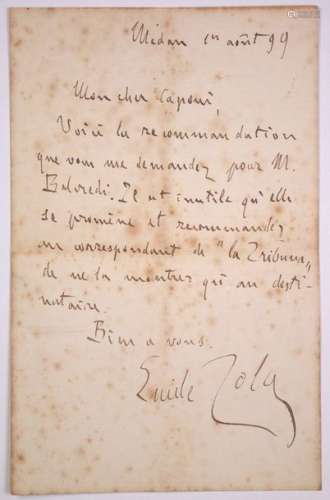 Médan 1er août 99
Mon cher Caponi,
Voici la recommandation
que vous me demandez pour M.
Il est inutile qu'elle
se promène et recommandez
au correspondant de "la Tribuna"
de ne la montrer qu'au desti-
nataire.
Bien à vous.
Emile Zola